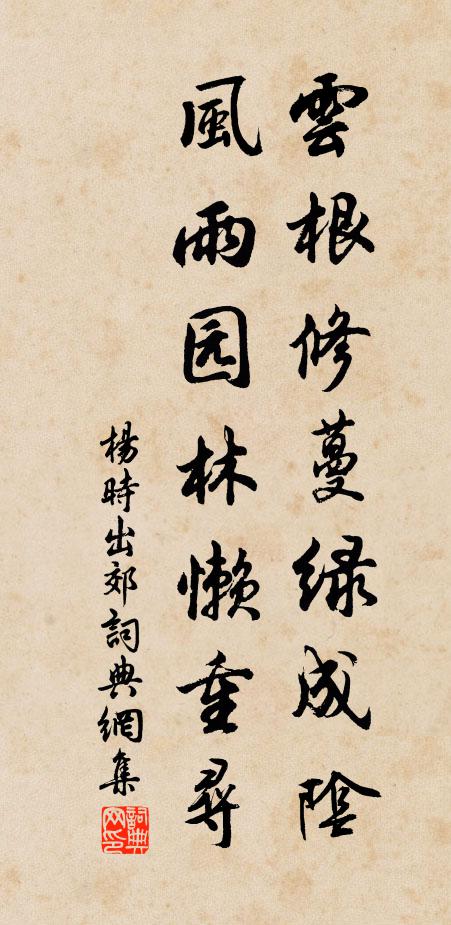 雲根修蔓緑成陰
風雨园林懶重尋
楊時出郊詞典網集
詞典网印